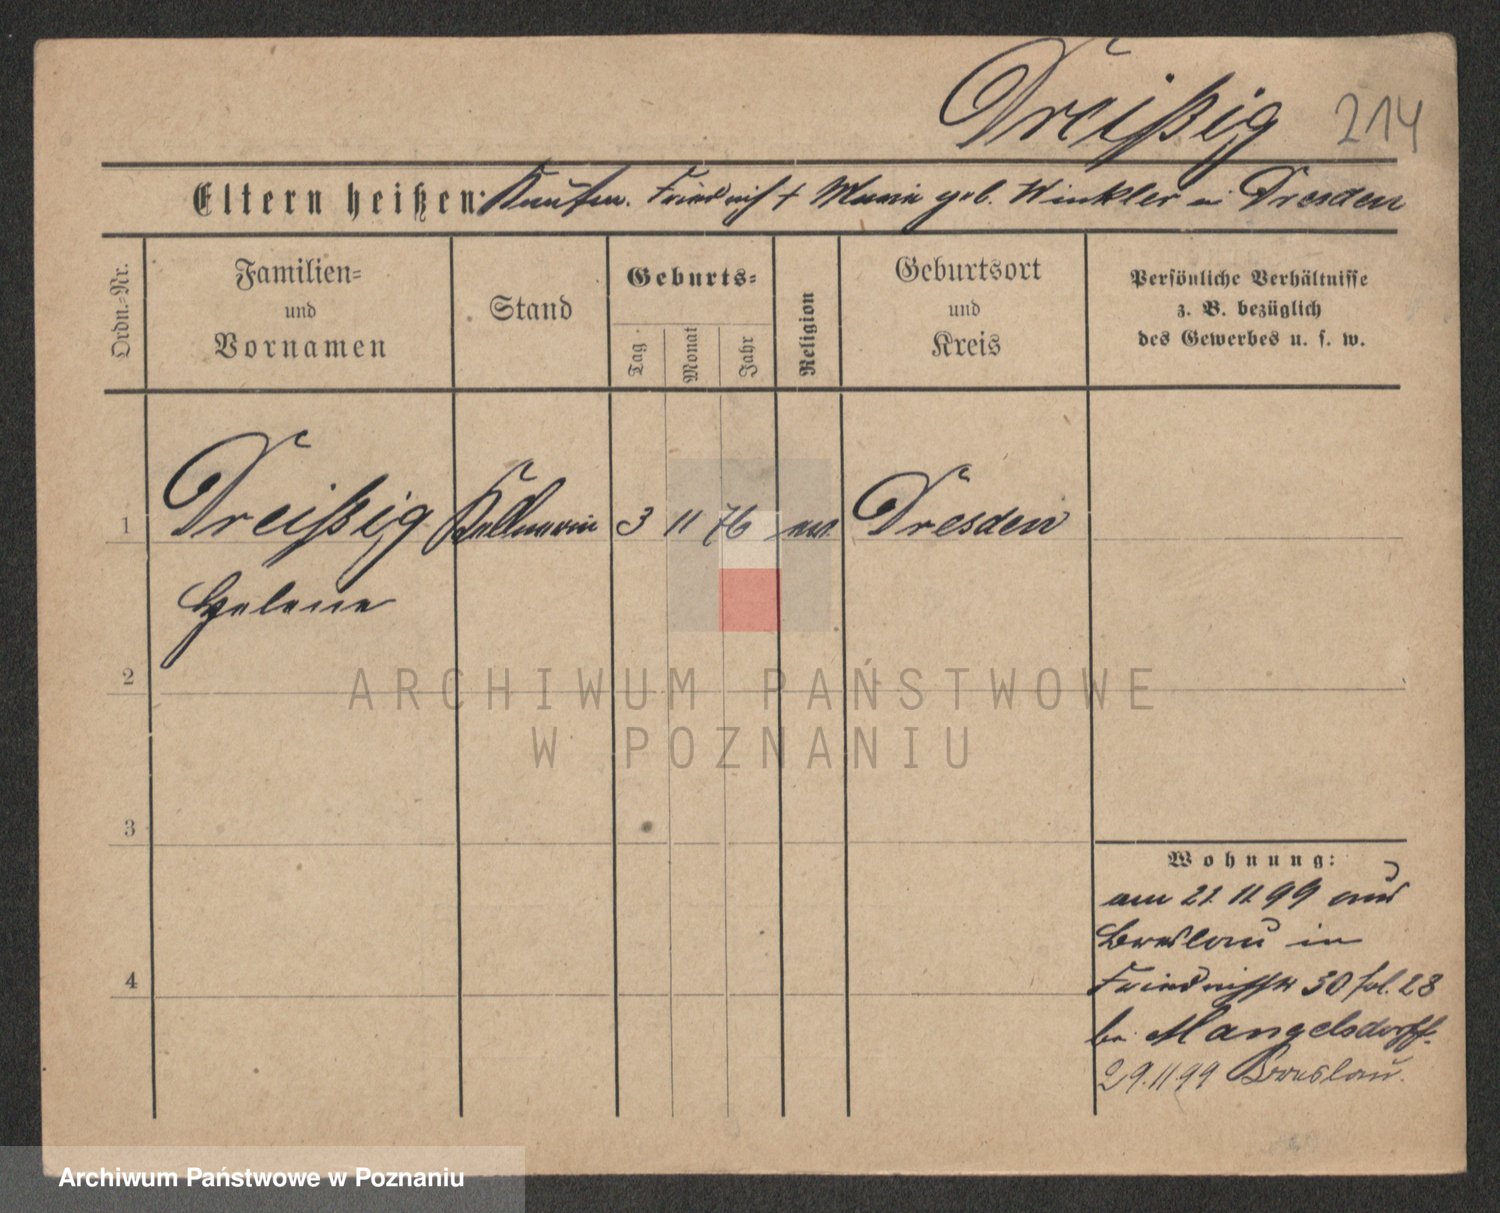 Dreißig 214
Eltern heißen: Kaufm. Friedrich † Marie geb. Winkler in Dresden
Ordn.-Nr.
Familien-
und
Vornamen
Stand
Geburts-
Tag
Monat
Jahr
Religion
Geburtsort
und
Kreis
Persönliche Verhältnisse
z. B. bezüglich
des Gewerbes u. s. w.
1 Dreißig Kellnerin 3 11 76 ev. Dresden
Helene
2
3
4
ARCHIWUM PAŃSTWOWE
W POZNANIU
Wohnung:
am 21. 11 99 aus
Breslau in
Friedrichstr 30 fol. 28
bei Mangelsdorff.
29.11.99 Breslau.
Archiwum Państwowe w Poznaniu